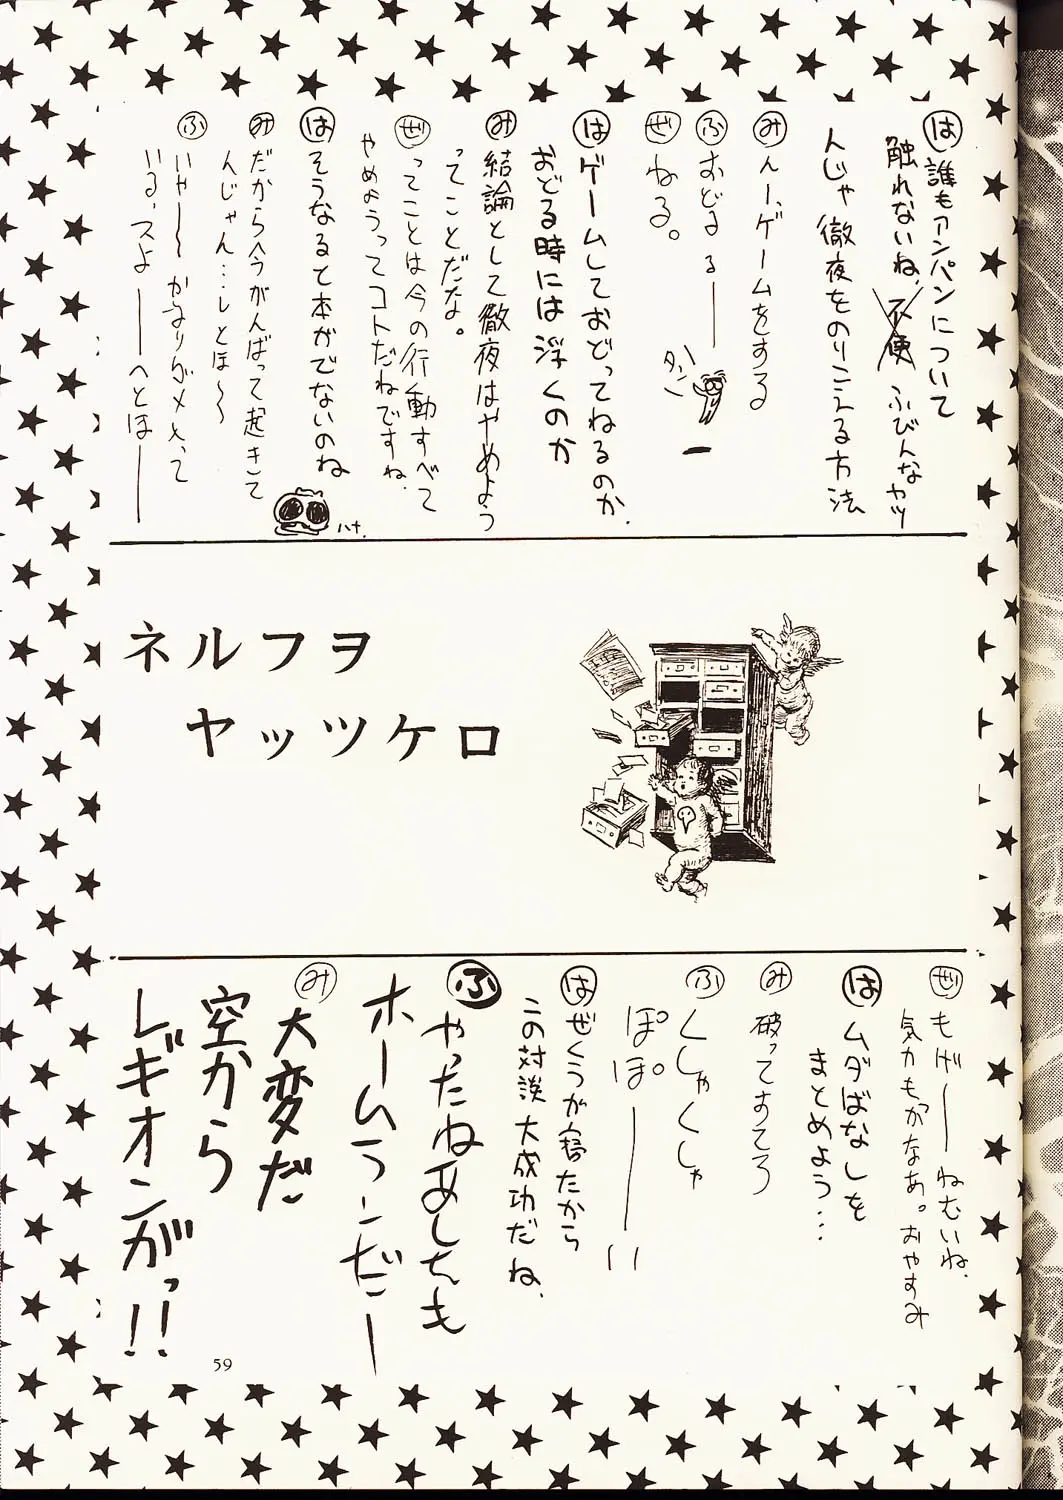 は 誰もアンパンについて
触れないね、不便 ふびんなヤツ
んじゃ徹夜をのりこえる方法
み んー、ゲームをする
ふ おどるー
タンッ
ぜ ねる。
は ゲームしておどってねるのか、
おどる時には浮くのか
み 結論として徹夜はやめよう
ってことだな。
ぜ ってことは今の行動すべて
やめようってコトだねですね、
は そうなると本がでないのね
ハナ.
み だから今がんばって起きて
んじゃん…しとほ〜〜
ふ いや〜〜かなりがメとって
いる、スよ――へとほ――
ネルフヲ
ヤッツケロ
ぜ もげ――ねむいね、
気力もつかなあ。おやすみ
は ムダばなしを
まとめよう…
み 破ってすてろ
ふ くしゃくしゃ
ぽぽ――い
は ぜくうが寝たから
この対談大成功だね、
ふ やったねあしたも
ホームランだー
み 大変だ
空から
レギオンがっ!!
59